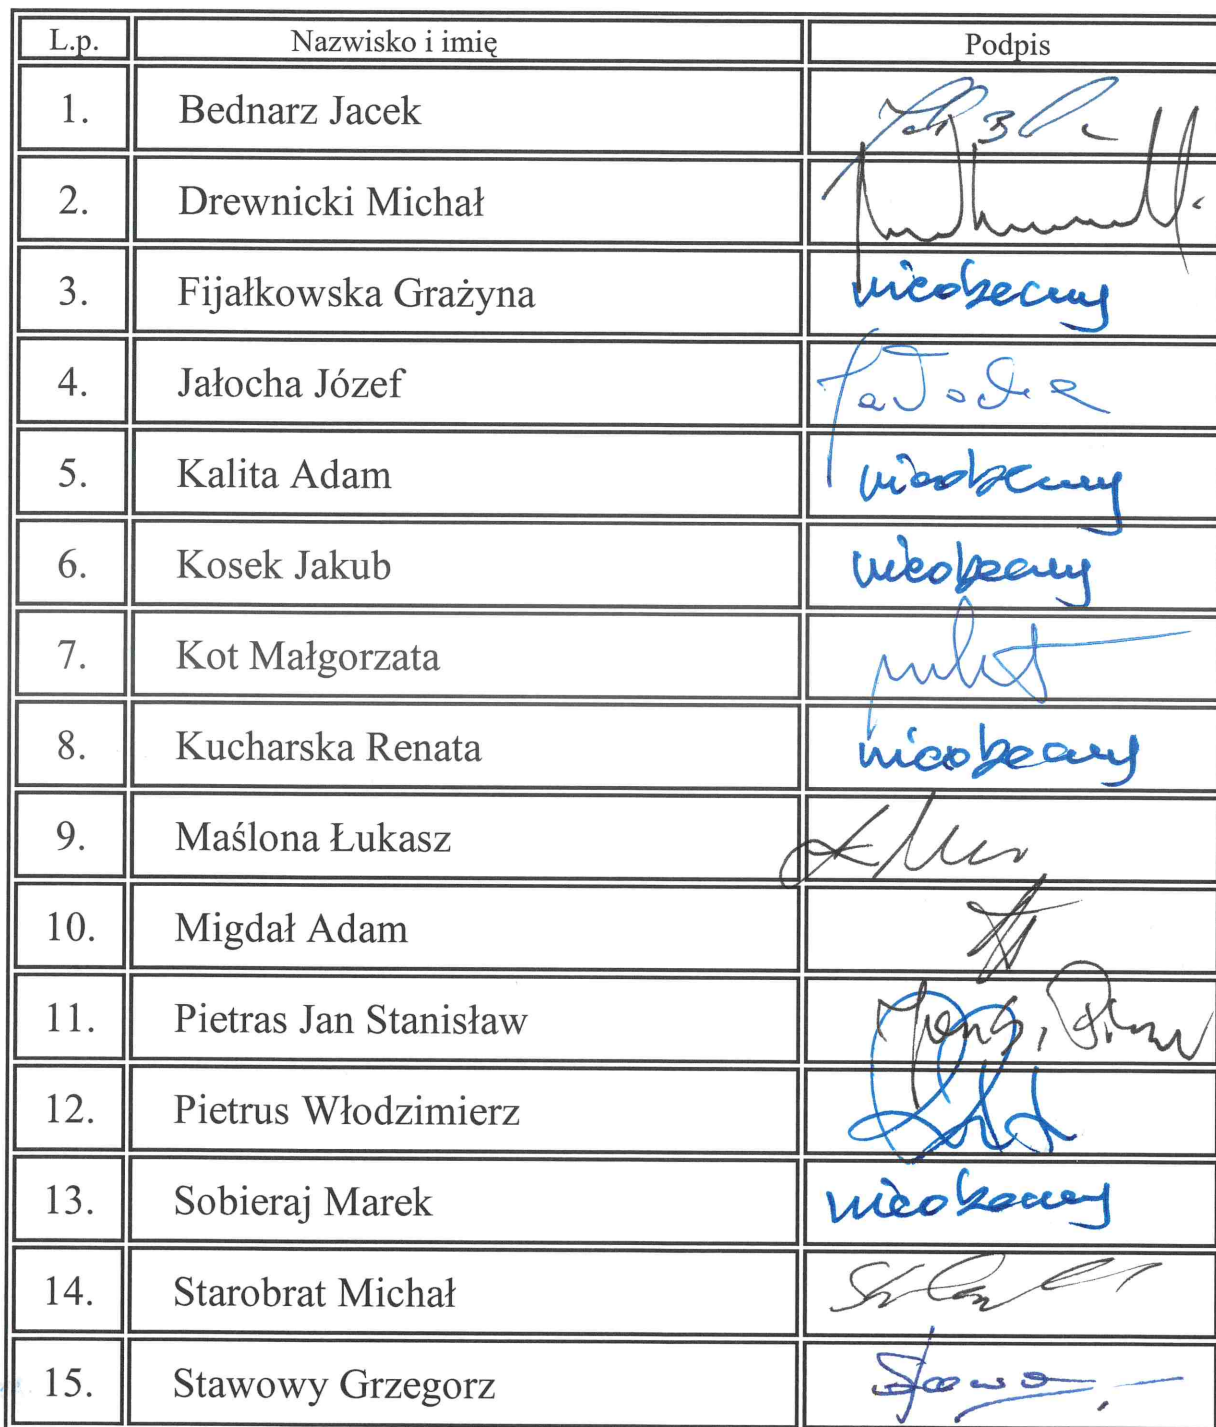 L.p. Nazwisko i imię Podpis
1. Bednarz Jacek
2. Drewnicki Michał
3. Fijałkowska Grażyna nieobecny
4. Jałocha Józef Jałocha
5. Kalita Adam nieobecny
6. Kosek Jakub nieobecny
7. Kot Małgorzata
8. Kucharska Renata nieobecny
9. Maślona Łukasz
10. Migdał Adam
11. Pietras Jan Stanisław
12. Pietrus Włodzimierz
13. Sobieraj Marek nieobecny
14. Starobrat Michał
15. Stawowy Grzegorz